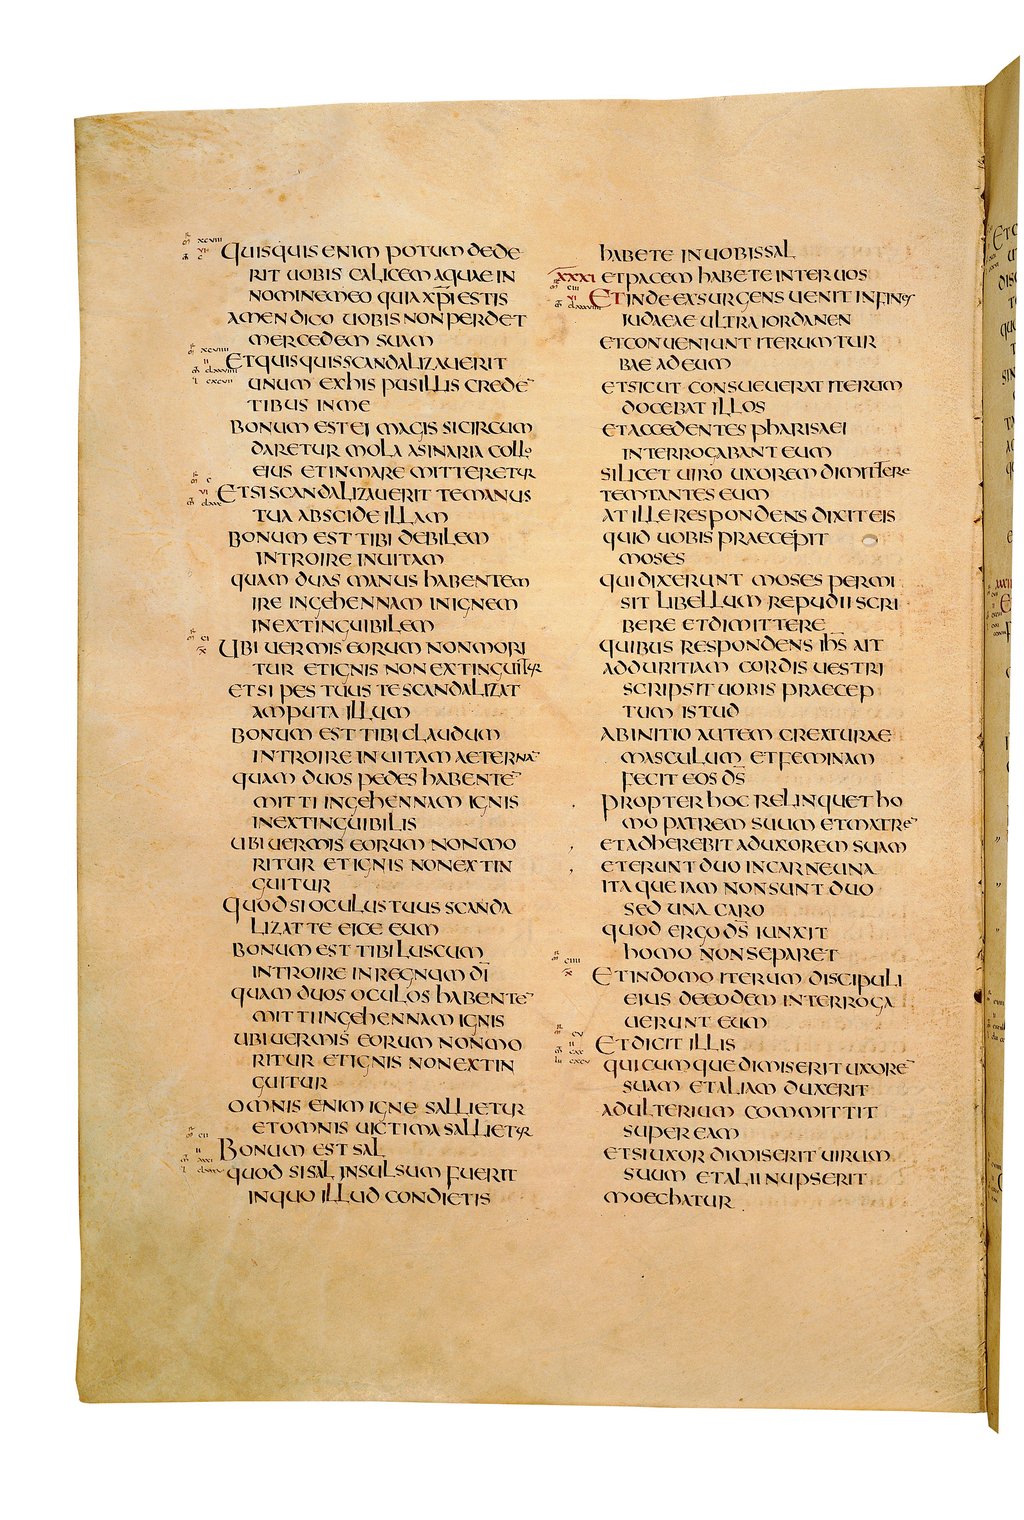 QUISQUIS ENIM POTUM DEDE
RIT UOBIS CALICEM AQUAE IN
NOMINE MEO QUIA XPI ESTIS
AMEN DICO UOBIS NON PERDET
MERCEDEM SUAM
ET QUISQUIS SCANDALIZAUERIT
UNUM EX HIS PUSILLIS CREDE‾
TIBUS IN ME
BONUM EST EI MAGIS SI CIRCUM
DARETUR MOLA ASINARIA COLLO
EIUS ET IN MARE MITTERETUR
ET SI SCANDALIZAUERIT TE MANUS
TUA ABSCIDE ILLAM
BONUM EST TIBI DEBILEM
INTROIRE IN UITAM
QUAM DUAS MANUS HABENTEM
IRE IN GEHENNAM IN IGNEM
INEXTINGUIBILEM
UBI UERMIS EORUM NON MORI
TUR ET IGNIS NON EXTINGUITUR
ET SI PES TUUS TE SCANDALIZAT
AMPUTA ILLUM
BONUM EST TIBI CLAUDUM
INTROIRE IN UITAM AETERNA‾
QUAM DUOS PEDES HABENTE‾
MITTI IN GEHENNAM IGNIS
INEXTINGUIBILIS
UBI UERMIS EORUM NON MO
RITUR ET IGNIS NON EXTIN
GUITUR
QUOD SI OCULUS TUUS SCANDA
LIZAT TE EICE EUM
BONUM EST TIBI LUSCUM
INTROIRE IN REGNUM DI
QUAM DUOS OCULOS HABENTE‾
MITTI IN GEHENNAM IGNIS
UBI UERMIS EORUM NON MO
RITUR ET IGNIS NON EXTIN
GUITUR
OMNIS ENIM IGNE SALLIETUR
ET OMNIS UICTIMA SALLIETUR
BONUM EST SAL
QUOD SI SAL INSULSUM FUERIT
IN QUO ILLUD CONDIETIS
HABETE IN UOBIS SAL
XXXI ET PACEM HABETE INTER UOS
ET INDE EXSURGENS UENIT IN FINES
IUDAEAE ULTRA IORDANEN
ET CONUENIUNT ITERUM TUR
BAE AD EUM
ET SICUT CONSUEUERAT ITERUM
DOCEBAT ILLOS
ET ACCEDENTES PHARISAEI
INTERROGABANT EUM
SI LICET UIRO UXOREM DIMITTERE
TEMTANTES EUM
AT ILLE RESPONDENS DIXIT EIS
QUID UOBIS PRAECEPIT
MOSES
QUI DIXERUNT MOSES PERMI
SIT LIBELLUM REPUDII SCRI
BERE ET DIMITTERE
QUIBUS RESPONDENS IHS AIT
AD DURITIAM CORDIS UESTRI
SCRIPSIT UOBIS PRAECEP
TUM ISTUD
AB INITIO AUTEM CREATURAE
MASCULUM ET FEMINAM
FECIT EOS DS
PROPTER HOC RELINQUET HO
MO PATREM SUUM ET MATRE‾
ET ADHEREBIT AD UXOREM SUAM
ET ERUNT DUO IN CARNE UNA
ITAQUE IAM NON SUNT DUO
SED UNA CARO
QUOD ERGO DS IUNXIT
HOMO NON SEPARET
ET IN DOMO ITERUM DISCIPULI
EIUS DE EODEM INTERROGA
UERUNT EUM
ET DICIT ILLIS
QUICUMQUE DIMISERIT UXORE‾
SUAM ET ALIAM DUXERIT
ADULTERIUM COMMITTIT
SUPER EAM
ET SI UXOR DIMISERIT UIRUM
SUUM ET ALII NUPSERIT
MOECHATUR